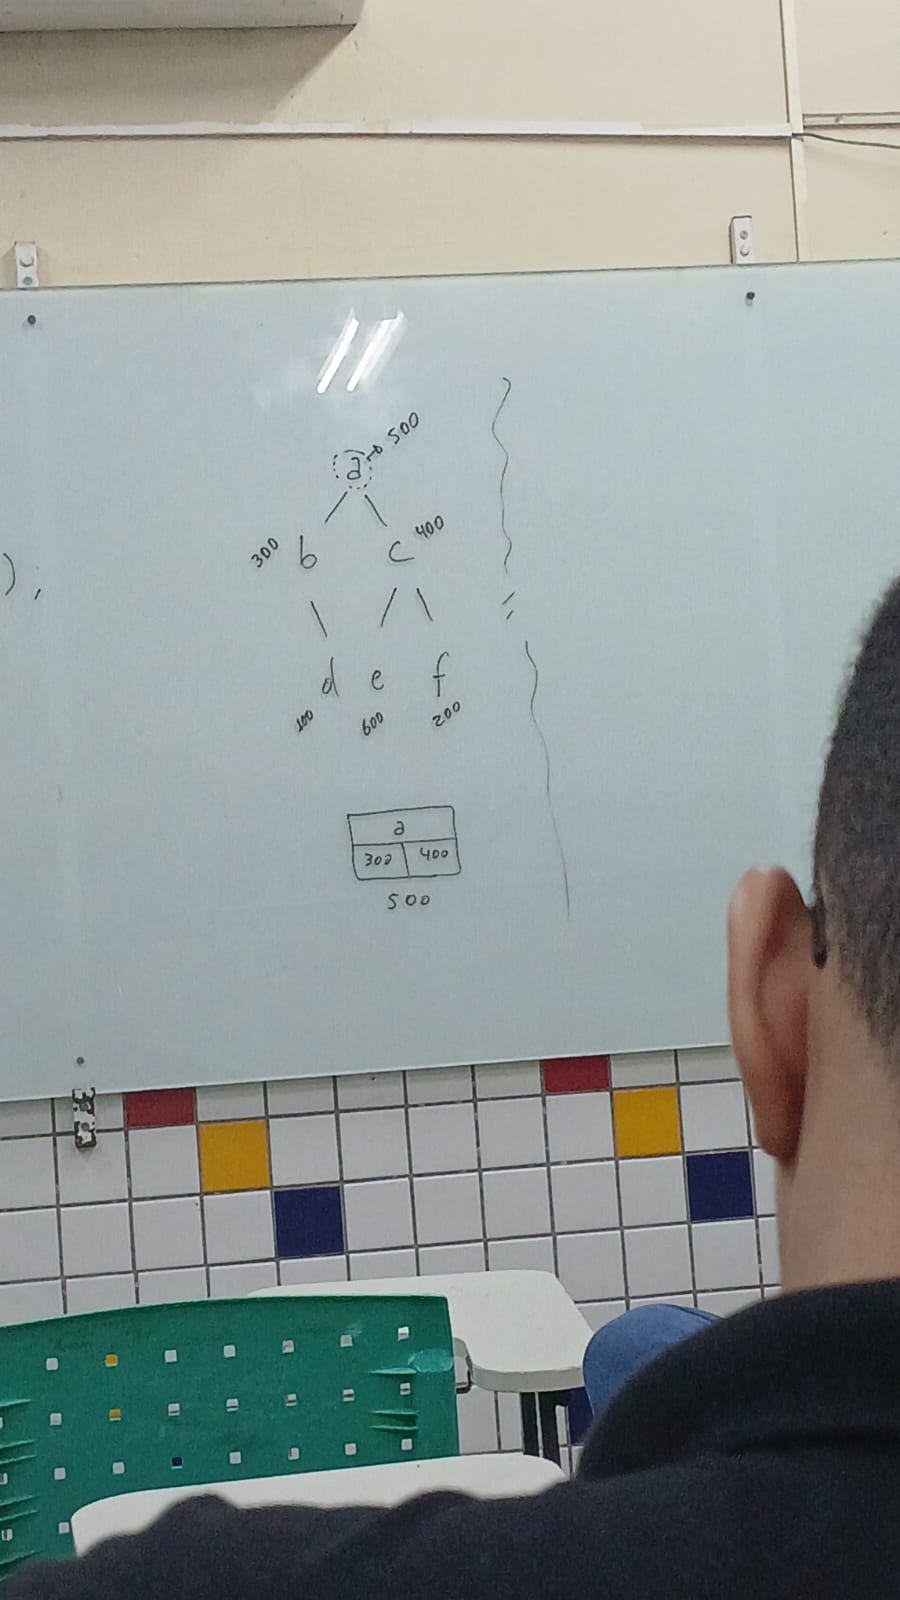 a → 500
300 b c 400
d e f
100 600 200
a
300 400
500
),